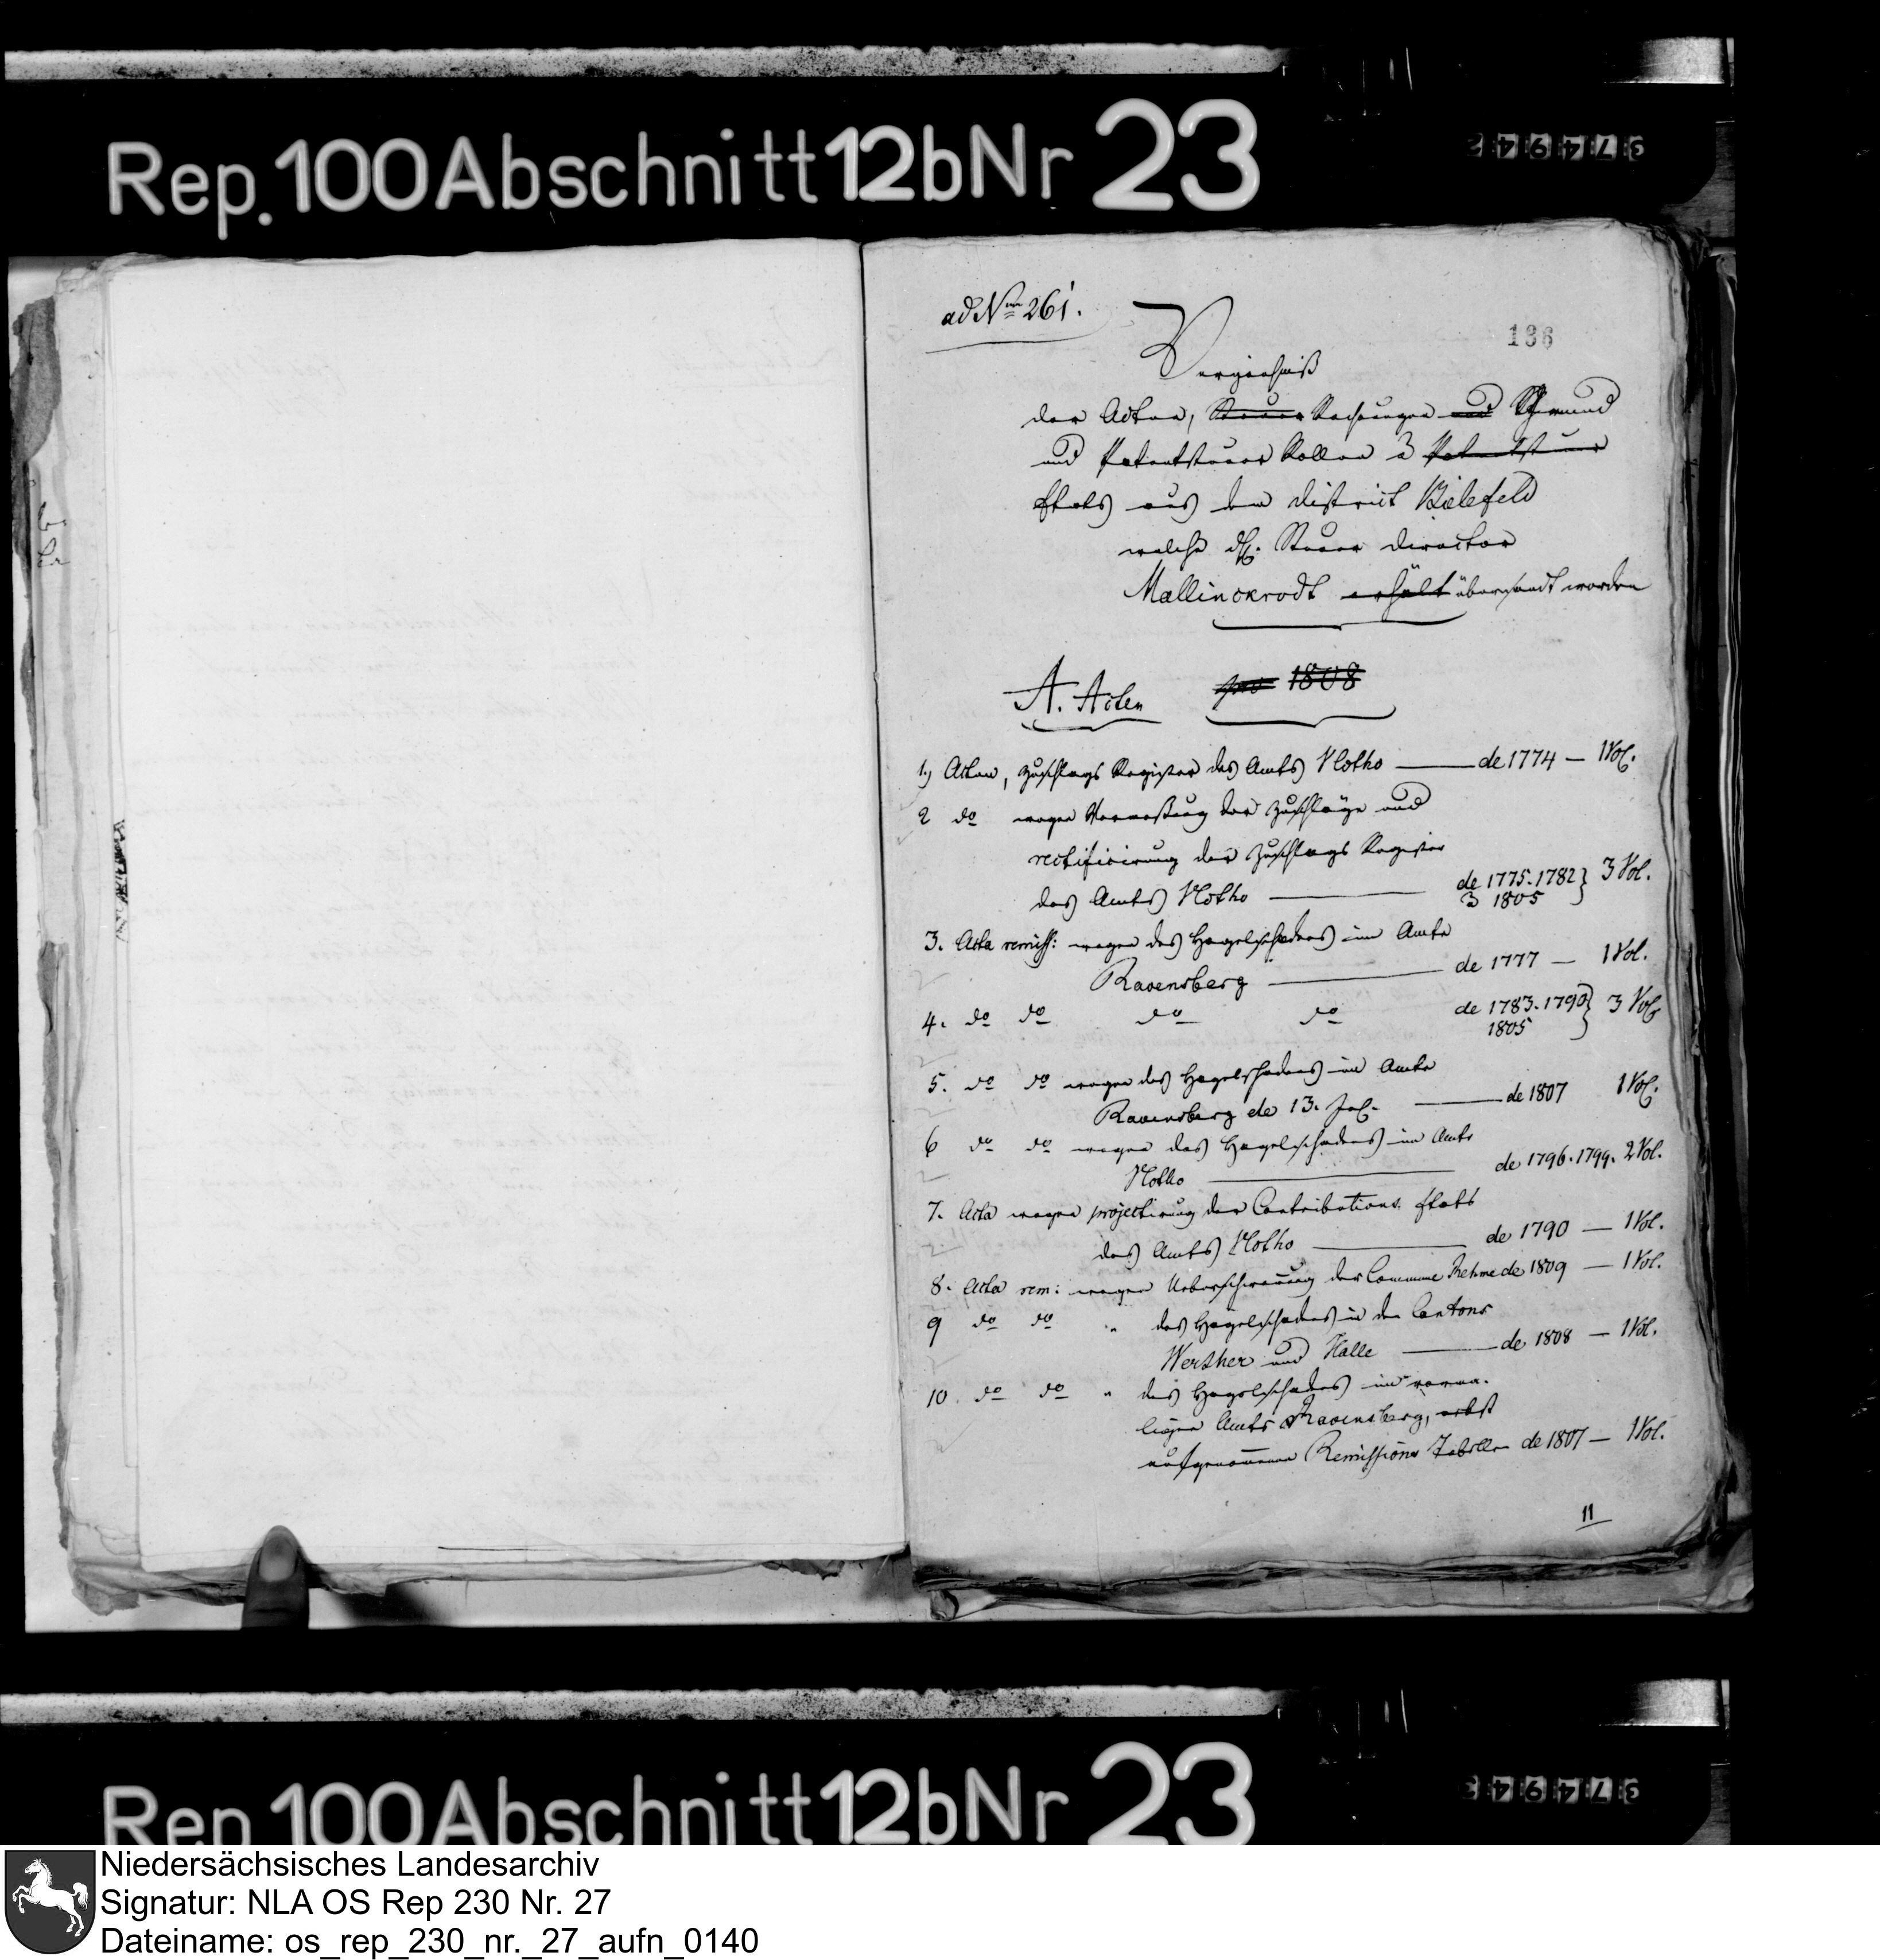 Rep. 100 Abschnitt 12b Nr 23
ad Nrm 261.
136
Verzeichniß
der Acten, Steuer Rechnungen und
und Patentsteuer Rollen & Patentsteuer
Etats aus dem District Bielefeld
welche dH. Steuer Director
Mallinckrodt erhält übersandt worden
A. Acten pro 1808
1.) Acten, Zuschlags Register des Amts Vlotho — de 1774 — 1 Vol.
2 do wegen Vermessung der Zuschläge und
rectificirung der Zuschlags Register
des Amts Vlotho — de 1775. 1782 } 3 Vol.
& 1805
3. Acta remiss: wegen des Hagelschadens im Amte
Ravensberg — de 1777 — 1 Vol.
4. do do do do de 1783. 1790 } 3 Vol.
1805
5. do do wegen des Hagelschadens im Amte
Ravensberg de 13. Jul. — de 1807 1 Vol.
6 do do wegen des Hagelschadens im Amte
Vlotho — de 1796. 1799. 2 Vol.
7. Acta wegen projectirung der Contributions Etats
des Amts Vlotho — de 1790 — 1 Vol.
8. Acta rem: wegen Ueberschwemung der Commune Rehme de 1809 — 1 Vol.
9 do do " des Hagelschadens in den Cantons
Werther und Halle — de 1808 — 1 Vol.
10. do do " des Hagelschadens im vorma-
ligen Amte Ravensberg, nebst
aufgenommene Remissions Tabellen de 1807 — 1 Vol.
11
Rep. 100 Abschnitt 12b Nr 23
Niedersächsisches Landesarchiv
Signatur: NLA OS Rep 230 Nr. 27
Dateiname: os_rep_230_nr._27_aufn_0140